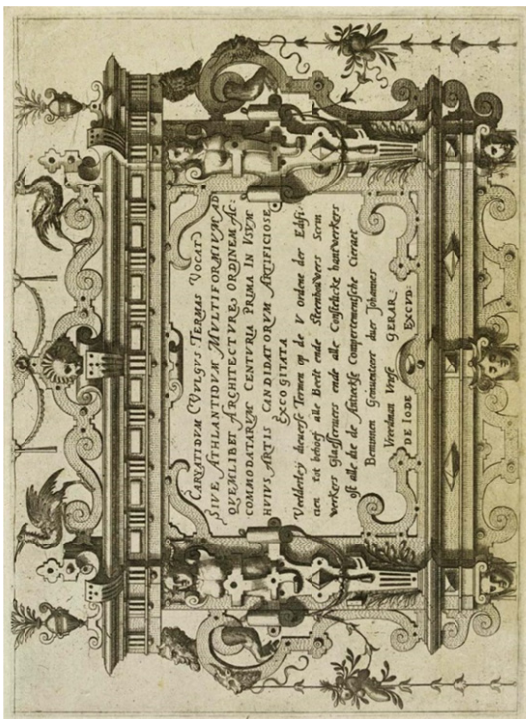 CARYATIDEM CVULGVS TERMAS VOCAT)
SIVE ATHLANTIDVM MULTIFORMIVM AD
QVEMLIBET ARCHITECTVRE ORDINEM AC:
COMMODATARVM CENTVRIA PRIMA IN VSVM
HVIVS ARTIS CANDIDATORVM ARTIFICIOSE
EXCOGITATA
Veelderleij dieuerse Termen op de V ordene der Edifi-
cien tot behoef alle Beelt ende Steenhouwers Scrin
werkers Glaesscriuers ende alle Constricke hantwerkers
oft alle die de Antieckse Compertementsche Cieraet
Beminnen Geinuenteert duer Johannes
Vreedman Vriese GERAR:
DE IODE EXCVD: